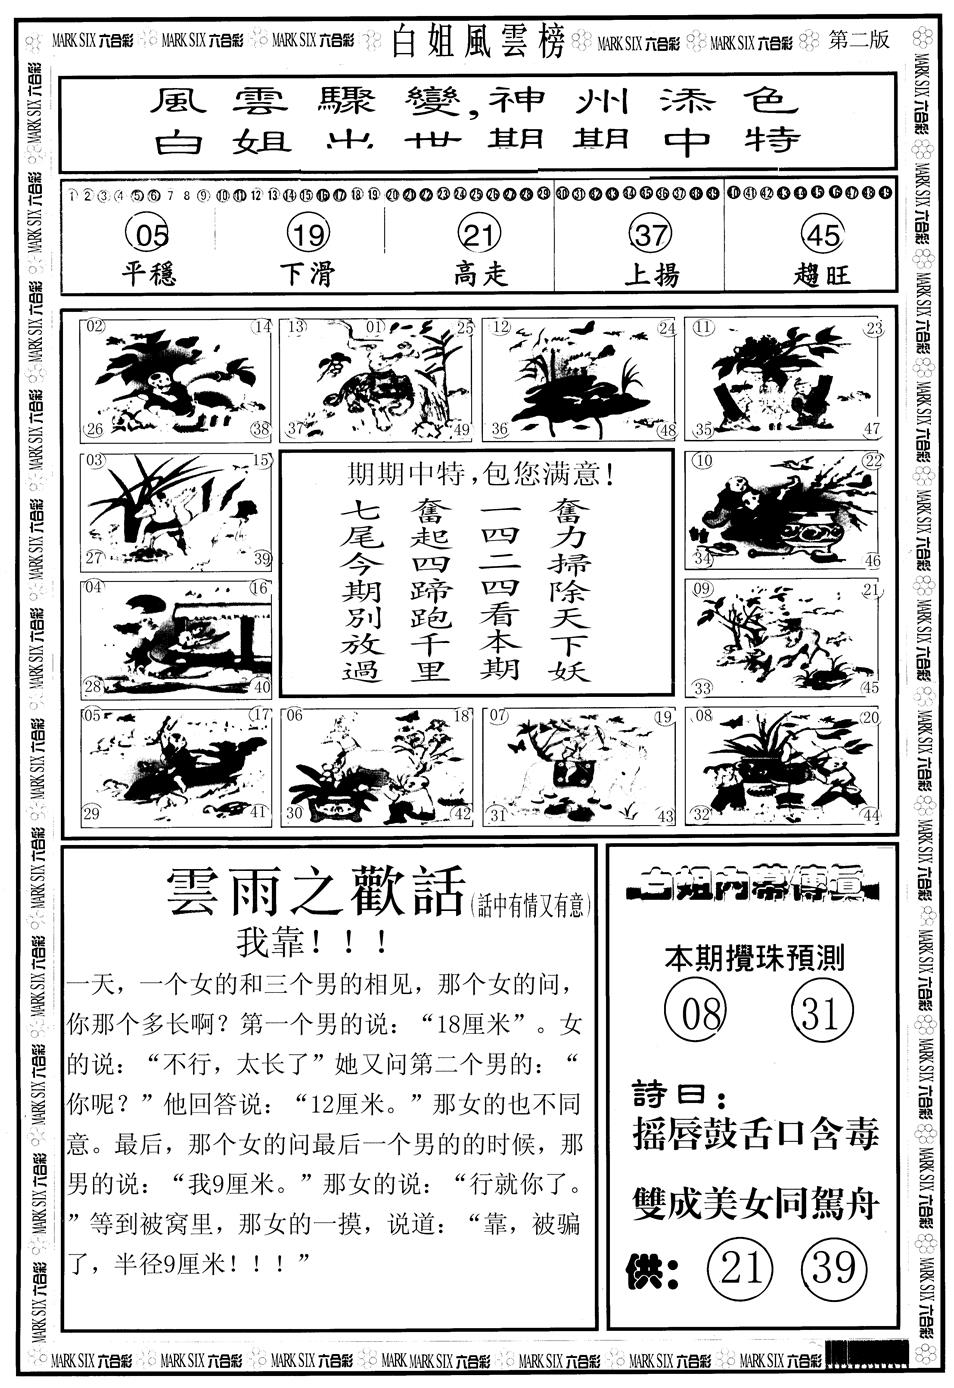 MARK SIX 六合彩 MARK SIX 六合彩 MARK SIX 六合彩 白姐風雲榜 MARK SIX 六合彩 MARK SIX 六合彩 第二版
風雲驟變,神州添色
白姐出世期期中特
1 2 3 4 5 6 7 8 9 10 11 12 13 14 15 16 17 18 19 20 21 22 23 24 25 26 27 28 29 30 31 32 33 34 35 36 37 38 39 40 41 42 43 44 45 46 47 48 49
05 19 21 37 45
平穩 下滑 高走 上揚 趨旺
02 14 13 01 25 12 24 11 23
26 38 37 49 36 48 35 47
03 15 10 22
27 39 34 46
04 16 09 21
28 40 33 45
05 17 06 18 07 19 08 20
29 41 30 42 31 43 32 44
期期中特,包您满意!
奮力掃除天下妖
一四二四看本期
奮起四蹄跑千里
七尾今期別放過
雲雨之歡話(話中有情又有意)
我靠!!!
一天，一个女的和三个男的相见，那个女的问，
你那个多长啊？第一个男的说：“18厘米”。女
的说：“不行，太长了”她又问第二个男的：“
你呢？”他回答说：“12厘米。”那女的也不同
意。最后，那个女的问最后一个男的的时候，那
男的说：“我9厘米。”那女的说：“行就你了。
”等到被窝里，那女的一摸，说道：“靠，被骗
了，半径9厘米！！！”
白姐内幕傳真
本期攪珠預測
08 31
詩曰:
摇唇鼓舌口含毒
雙成美女同駕舟
供: 21 39
MARK SIX 六合彩 MARK SIX 六合彩 MARK SIX 六合彩 MARK MARK SIX 六合彩 MARK SIX 六合彩 MARK SIX 六合彩 MARK SIX 六合彩